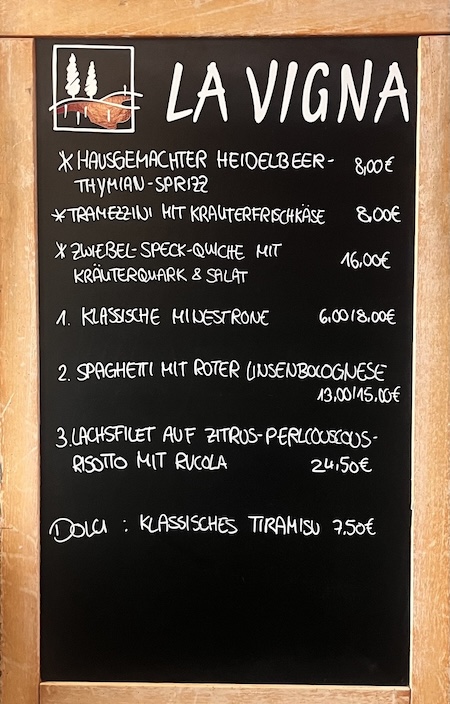 LA VIGNA
* HAUSGEMACHTER HEIDELBEER- 8,00€
THYMIAN-SPRIZZ
* TRAMEZZINI MIT KRÄUTERFRISCHKÄSE 8,00€
* ZWIEBEL-SPECK-QUICHE MIT
KRÄUTERQUARK & SALAT 16,00€
1. KLASSISCHE MINESTRONE 6,00/8,00€
2. SPAGHETTI MIT ROTER LINSENBOLOGNESE
13,00/15,00€
3. LACHSFILET AUF ZITRUS-PERLCOUSCOUS-
RISOTTO MIT RUCOLA 24,50€
DOLCI : KLASSISCHES TIRAMISU 7,50€